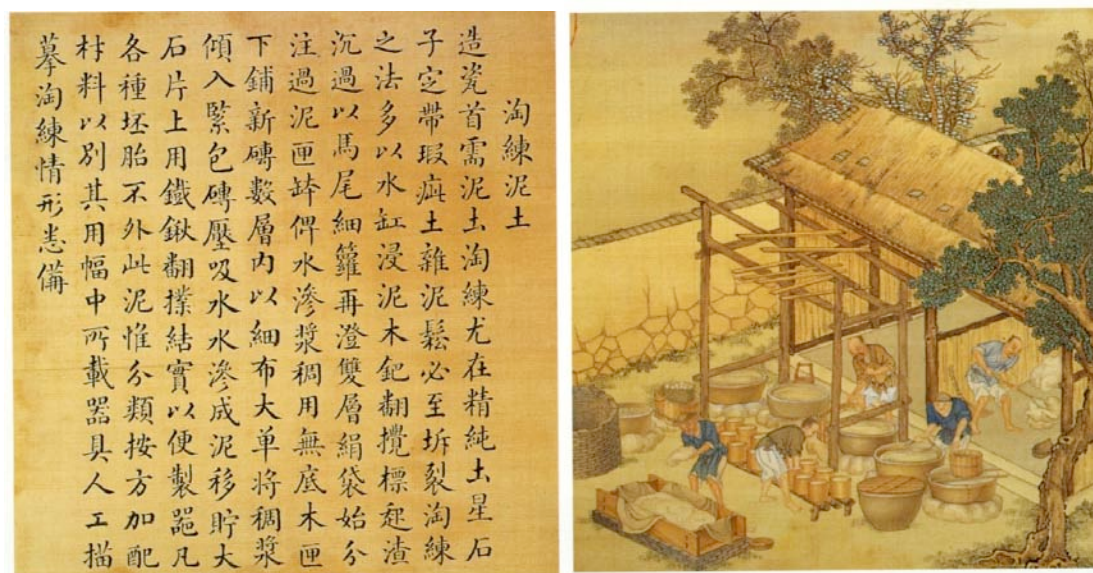 淘練泥土
造瓷首需泥土淘練尤在精純土星石
子定帶瑕疵土雜泥鬆必至坼裂淘練
之法多以水缸浸泥木鈀翻攪標起渣
沉過以馬尾細籮再澄雙層絹袋始分
注過泥匣缽俾水滲漿稠用無底木匣
下鋪新磚數層內以細布大单將稠漿
傾入緊包磚壓吸水水滲成泥移貯大
石片上用鐵鍬翻撲結實以便製噐凡
各種坯胎不外此泥惟分類按方加配
材料以別其用幅中所載器具人工描
摹淘練情形悉備